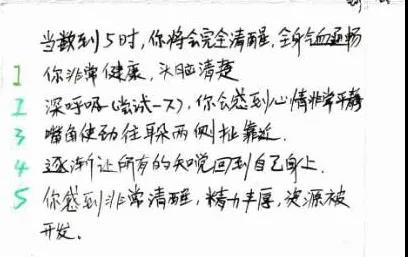 当数到5时,你将会完全清醒,全身气血通畅
1 你非常健康,头脑清楚
2 深呼吸(尝试一下),你会感到心情非常平静
3 嘴角使劲往耳两侧扯靠近.
4 逐渐让所有的知觉回到自己身上.
5 你感到非常清醒,精力丰厚,资源被
开发.